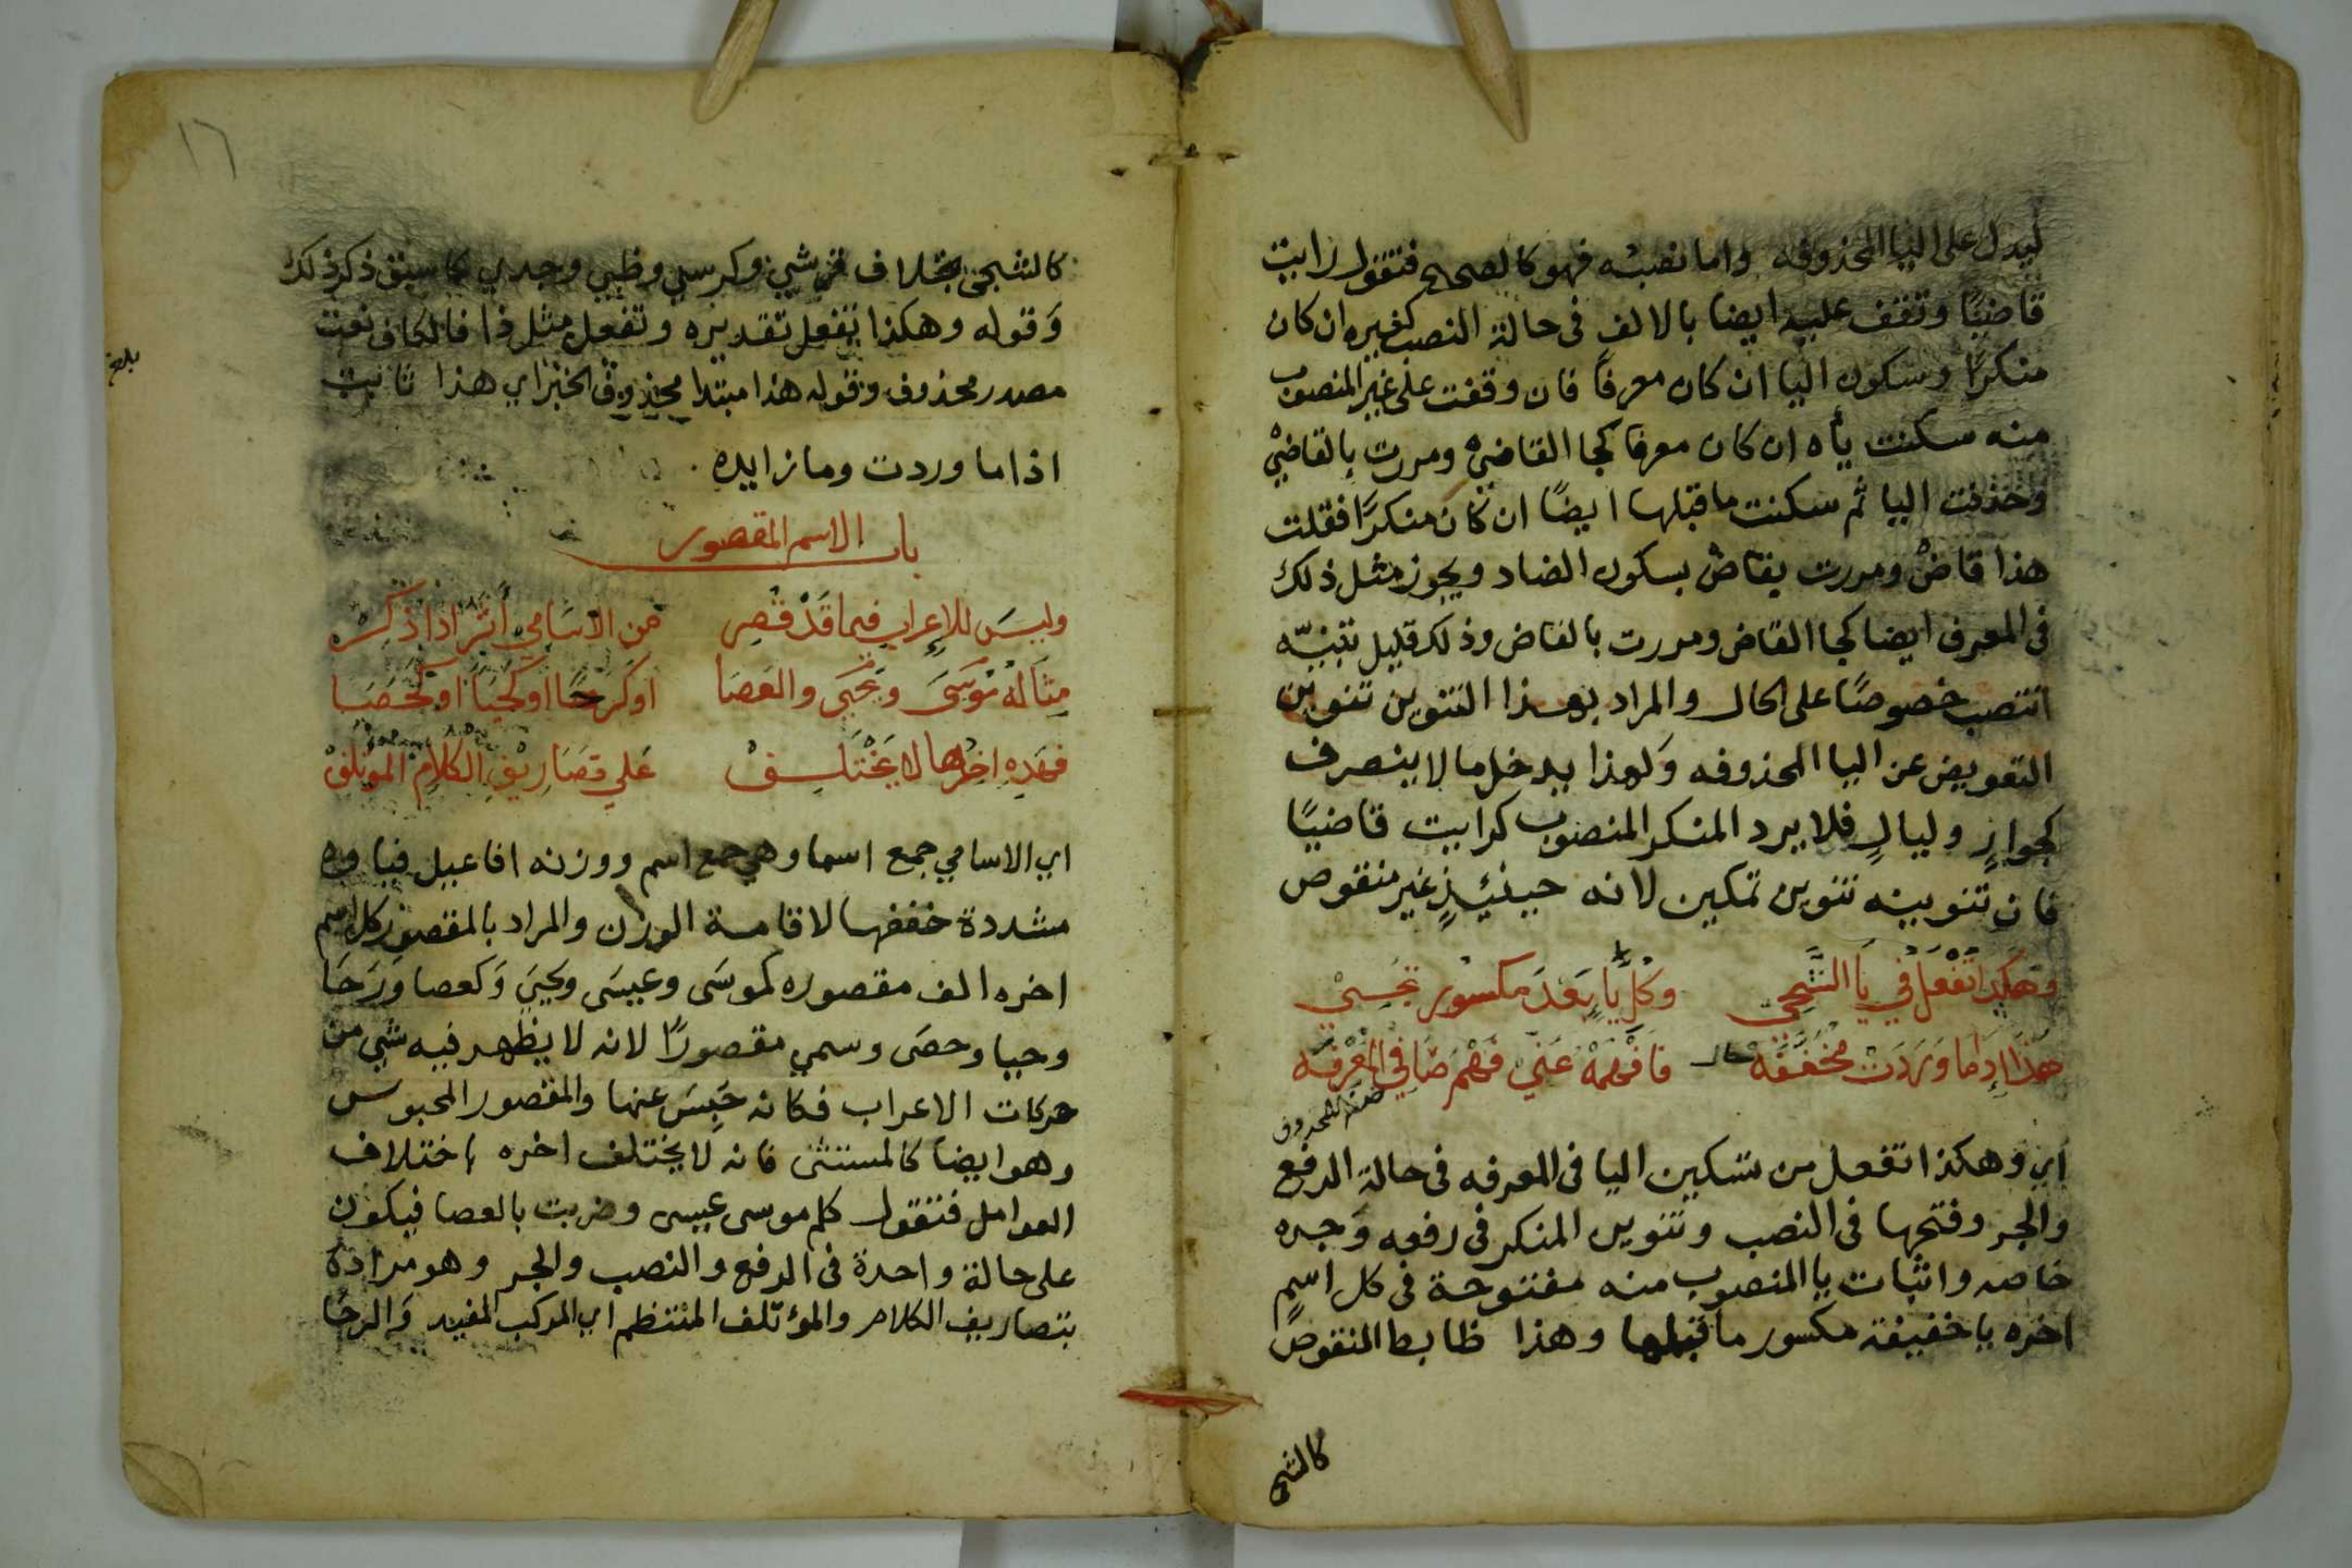 ليدل على اليا المحذوفه واما نصبه فهو كالصحيح فتقول رايت
قاضيًا وتقف عليه ايضا بالالف فى حالة النصب كغيره ان كان
منكرًا وسكون اليا ان كان معرفاً فان وقفت على غير المنصوب
منه سكنت يأه ان كان معرفا كجا القاضيْ ومررت بالقاضيْ
وحذفت اليا ثم سكنت ما قبلها ايضًا ان كان منكرًا فقلت
هذا قاضْ ومررت بقاضْ بسكون الضاد ويجوز مثل ذلك
فى المعرف ايضا كجا القاض ومررت بالقاض وذلك قليل تنبيه
انتصب خصوصًا على الحال والمراد بهذا التنوين تنوين
التعويض عن اليا المحذوفه وَلهذا يدخل ما لا ينصرف
كجوارٍ وليالٍ فلا يرد المنكر المنصوب كرايت قاضيًا
فان تنوينه تنوين تمكين لانه حينئيذٍ غير منقوص
وَهَكَذا تَفْعَلُ فِي يَا الشَّجِي وَكُلِّ يَا بَعْدَ مكسُورٍ تَجِيْ
هَذَا إِذَا مَا وَرَدَتْ مُخَفَّفَهْ حال فَافْهَمْهُ عَنّي فَهْمَ صَافِي المَعْرِفَه
صفة المحذوف
اي وهكذا تفعل من تسكين اليا فى المعرفه فى حالة الرفع
والجر وفتحها فى النصب وتنوين المنكر فى رفعه وَجره
خاصه واثبات يا المنصوب منه مفتوحة فى كل اسمٍ
اخره يا خفيفة مكسور ما قبلها وهذا ظابط المنقوص
كالشجى
١٦
كالشجى بخلاف قرشي وكرسي وظبي وجدي كما سبق ذكر ذلك
وَقوله وهكذا تفعل تقديره وتفعل مثل ذا فالكاف نعت
بلغ
مصدر محذوف وقوله هذا مبتدا محذوف الخبر اي هذا ثابت
اذا ما وردت وما زايده
باب الاسم المقصور
وليسَ للإعرابِ فيما قَدْ قُصِر مِن الاسَامِي اَثَر اذا ذُكِرْ
مِثَالهُ مُوسَى وَيَحْيَى والعَصَا اَوكَرحًا اوكحَيًا اوكَحَصَا
فهَذِهِ اخِرُها لا يَخْتَلِفْ عَلي تصَارِيْفِ الكلامِ المُوتَلِفْ
اي الاسامي جمع اسما وهي جمع اسم ووزنه افاعيل فياوه
مشددة خففها لاقامة الوزن والمراد بالمقصور كل اسم
اخره الف مقصوره كموسَى وعيسَى ويحيَي وَكعصا وَرَحَا
وحيا وحصَى وسمي مقصورًا لانه لا يظهر فيه شي من
حركات الاعراب فكانه حَبِسَ عنها والمقصور المحبوس
وهو ايضا كالمستثنى فانه لا يختلف اخره باختلاف
العوامل فتقول كلم موسى عيسى وضربت بالعصا فيكون
على حالة واحدة فى الرفع والنصب والجر وهو مرادة
بتصاريف الكلام والمؤتلف المنتظم اي المركب المفيد وَالرحَا